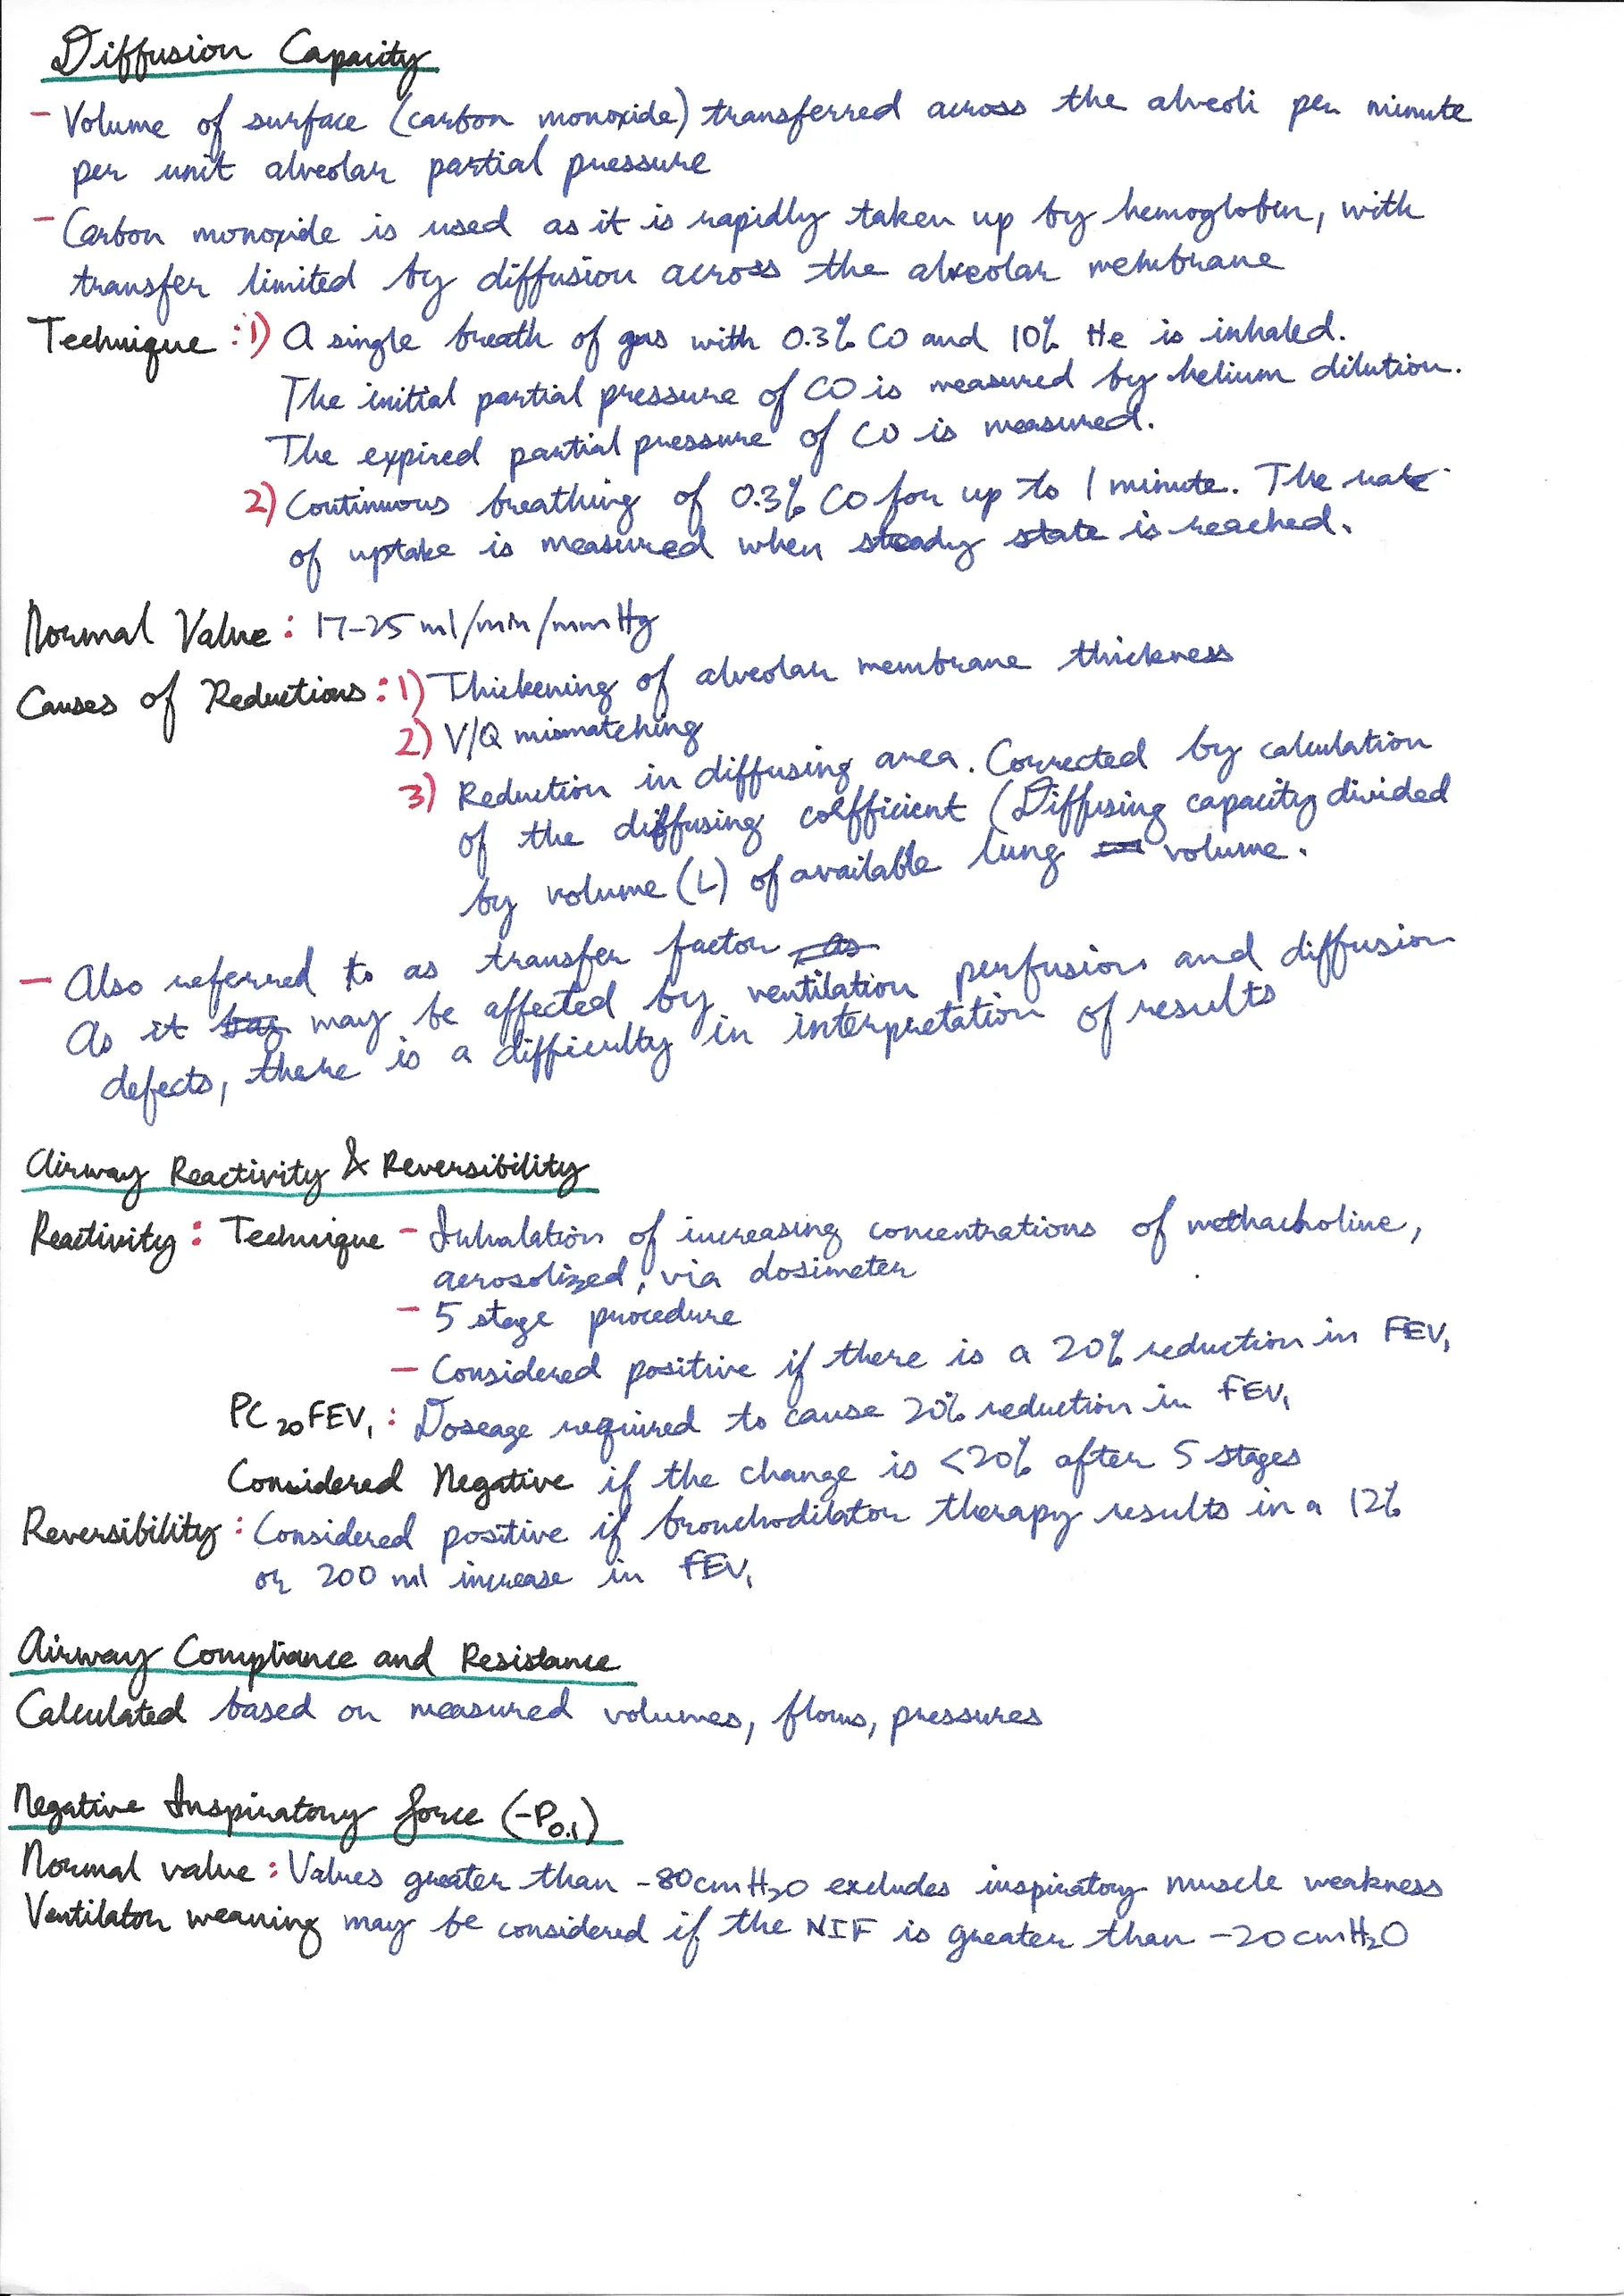 Diffusion Capacity
- Volume of surface (carbon monoxide) transferred across the alveoli per minute
per unit alveolar partial pressure
- Carbon monoxide is used as it is rapidly taken up by hemoglobin, with
transfer limited by diffusion across the alveolar membrane
Technique : 1) A single breath of gas with 0.3% CO and 10% He is inhaled.
The initial partial pressure of CO is measured by helium dilution.
The expired partial pressure of CO is measured.
2) Continuous breathing of 0.3% CO for up to 1 minute. The rate
of uptake is measured when steady state is reached.
Normal Value : 17-25 ml/min/mmHg
Causes of Reductions : 1) Thickening of alveolar membrane thickness
2) V/Q mismatching
3) Reduction in diffusing area. Corrected by calculation
of the diffusing coefficient (Diffusing capacity divided
by volume (L) of available lung volume.
- Also referred to as transfer factor
As it may be affected by ventilation perfusion and diffusion
defects, there is a difficulty in interpretation of results
Airway Reactivity & Reversibility
Reactivity : Technique - Inhalation of increasing concentrations of methacholine,
aerosolized, via dosimeter
- 5 stage procedure
- Considered positive if there is a 20% reduction in FEV₁
PC₂₀FEV₁ : Doseage required to cause 20% reduction in FEV₁
Considered Negative if the change is <20% after 5 stages
Reversibility : Considered positive if bronchodilator therapy results in a 12%
or 200 ml increase in FEV₁
Airway Compliance and Resistance
Calculated based on measured volumes, flows, pressures
Negative Inspiratory force (-P₀.₁)
Normal value : Values greater than -80cmH₂O excludes inspiratory muscle weakness
Ventilator weaning may be considered if the NIF is greater than -20cmH₂O